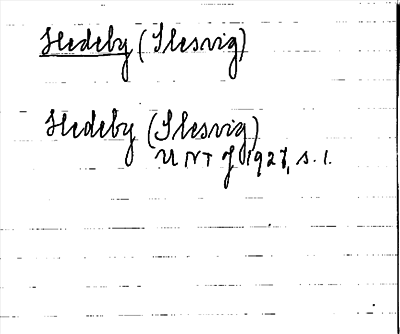 Hedeby (Slesvig)
Hedeby (Slesvig)
UNT 1927, s. 1.